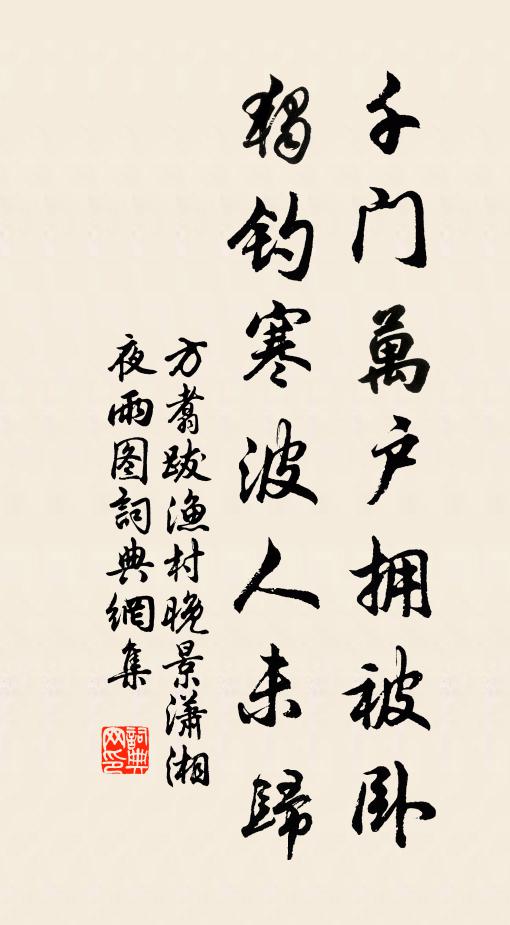 千门萬户拥被卧
獨钓寒波人未歸
方翥跋渔村晚景潇湘
夜雨图詞典網集
詞典网印